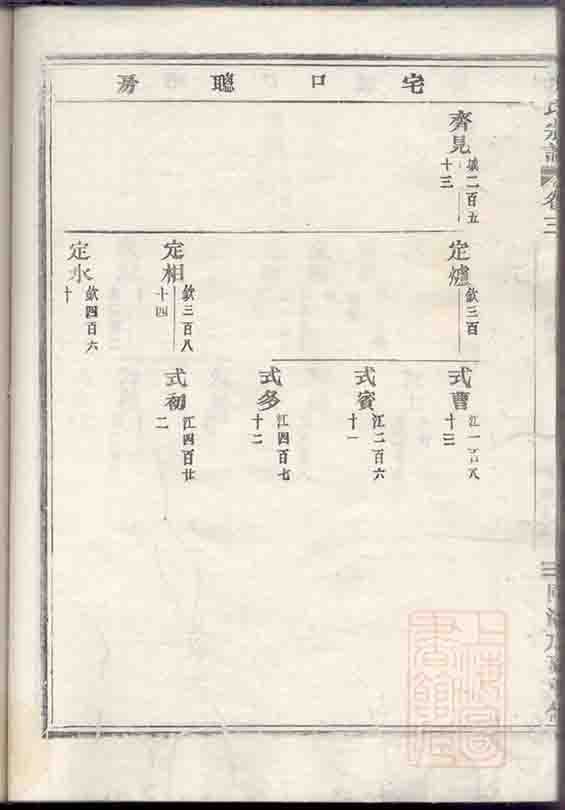 宅口聰房
齊見
塡二百五
十三
定爐
欽三百
定相
欽三百八
十四
定水
欽四百六
十
式曹
十三
式賓
江二百六
十一
式多
江四百七
十二
式初
江四百廿
二
卷三
上海圖書館藏